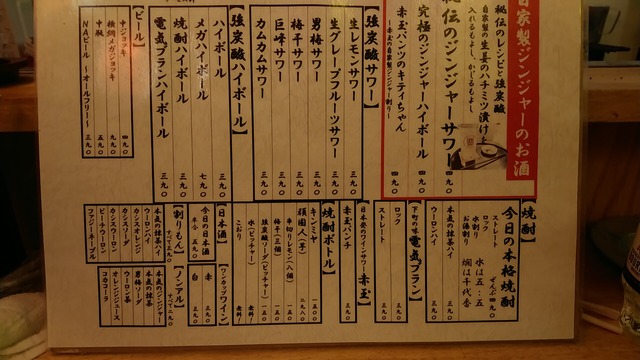 自家製ジンジャーのお酒
秘伝のレシピと強炭酸
自家製の生姜のハチミツ漬け
入れるもよし、かじるもよし
秘伝のジンジャーサワー 四九〇
究極のジンジャーハイボール 四九〇
赤玉パンツのキティちゃん
【強炭酸サワー】
生レモンサワー 三九〇
生グレープフルーツサワー 三九〇
男梅サワー 三九〇
梅干サワー 三九〇
巨峰サワー 三九〇
カムカムサワー 三九〇
【強炭酸ハイボール】
ハイボール 三九〇
メガハイボール 七九〇
焼酎ハイボール 三九〇
電気ブランハイボール 三九〇
【ビール】
中ジョッキ 四九〇
横綱メガジョッキ 九九〇
中瓶 五九〇
NAビール〜オールフリー〜 三九〇
【焼酎】
今日の本格焼酎
ぜんぶ四九〇
ストレート
ロック
水割り 水は五:五
お湯割り 燗は千代香
本気の抹茶ハイ 三九〇
ウーロンハイ 三九〇
下町の味 電気ブラン
ロック 三九〇
ストレート 三九〇
日本発のワインサワー 赤玉
赤玉パンチ 三九〇
【焼酎ボトル】
キンミヤ
頑固人(芋) 二九八〇
串切りレモン(八個) 一五〇
梅干(三個) 一五〇
強炭酸ソーダ(ピッチャー)
水(ピッチャー) 無料!
こおり 無料!
【日本酒】
今日の日本酒
半合 五九〇
【ワンカップワイン】
赤 三九〇
白 三九〇
【割りもん】
すべて三九〇
本気の抹茶ハイ
ウーロンハイ
カシスオレンジ
カシスソーダ
カシスウーロン
ピーチウーロン
ファジーネーブル
【ノンアル】
すべて二九〇
本気のジンジャー
本気の抹茶
ウーロン茶
男梅ソーダ
オレンジジュース
コカコーラ